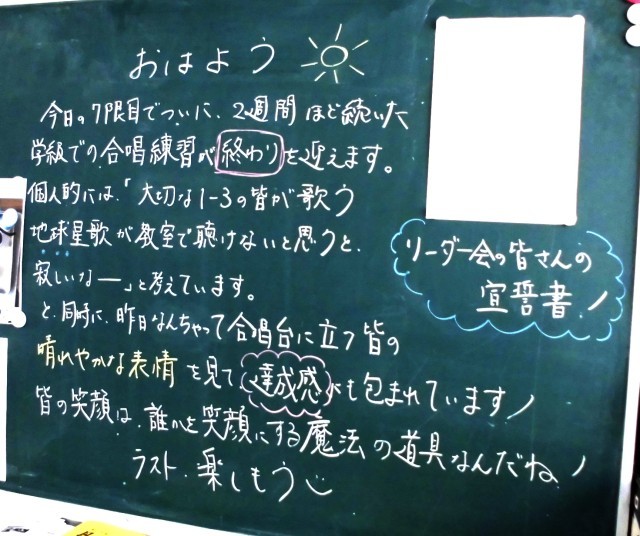 おはよう
今日の7限目でついに、2週間ほど続いた
学級での合唱練習が終わりを迎えます。
個人的には、「大切な1-3の皆が歌う
地球星歌が教室で聴けないと思うと、
寂しいなー」と考えています。
と、同時に、昨日なんちゃって合唱台に立つ皆の
晴れやかな表情を見て、達成感にも包まれています!
皆の笑顔は、誰かを笑顔にする魔法の道具なんだね!
ラスト、楽しもう
リーダー会の皆さんの
宣誓書!